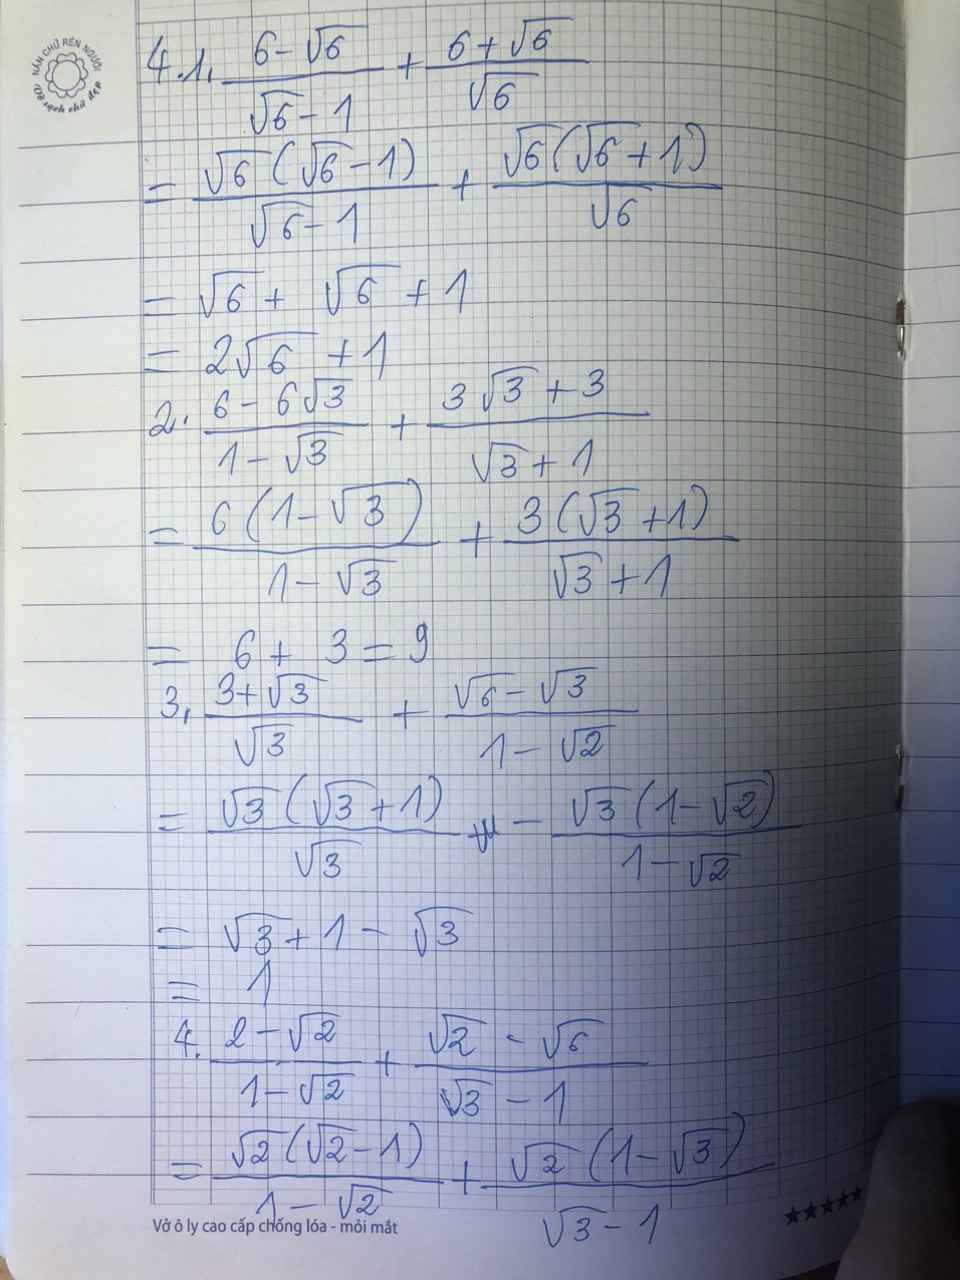 NẮN CHỮ RÈN NGƯỜI
Vở sạch chữ đẹp
4.1. (6-√6)/(√6-1) + (6+√6)/√6
= √6(√6-1)/(√6-1) + √6(√6+1)/√6
= √6 + √6 + 1
= 2√6 + 1
2. (6-6√3)/(1-√3) + (3√3+3)/(√3+1)
= 6(1-√3)/(1-√3) + 3(√3+1)/(√3+1)
= 6 + 3 = 9
3, (3+√3)/√3 + (√6-√3)/(1-√2)
= √3(√3+1)/√3 - √3(1-√2)/(1-√2)
= √3 + 1 - √3
= 1
4. (2-√2)/(1-√2) + (√2-√6)/(√3-1)
= √2(√2-1)/(1-√2) + √2(1-√3)/(√3-1)
Vở ô ly cao cấp chống lóa - mỏi mắt
★★★★★